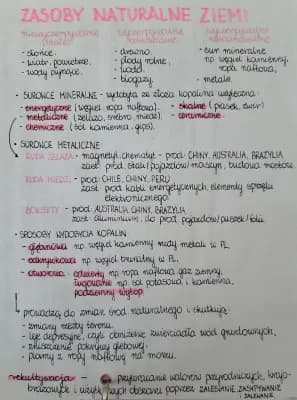 ZASOBY NATURALNE ZIEMI
niewyczerpywalne
wyczerpywalne
wyczerpywalne
- słońce,
- wiatr, powietrze,
- wody płynące.
- drewno,
- płody rolne,
- woda,
- biogazy,
- sur. mineralne
np. węgiel kamienny,
ropa naftowa,
- metale.
- SUROWCE MINERALNE - wydobyta ze złoża kopalina użyteczna:
- energetyczne (węgiel, ropa naftowa),
- metaliczne (żelazo, srebro, miedź),
- chemiczne (sól kamienna, gips),
- skalne (piasek, żwir)
- ceramiczne.
- SUROWCE METALICZNE
RUDA ŻELAZA - magnetyt, hematyt - prod. CHINY, AUSTRALIA, BRAZYLIA
zast. prod. stali/pojazdów/maszyn, budowa mostów.
RUDA MIEDZI - prod. CHILE, CHINY, PERU
zast. kabli energetycznych, elementy sprzętu
elektronicznego.
BOKSYTY - prod. AUSTRALIA, CHINY, BRAZYLIA
zast. aluminium, do prod. pojazdów/puszek/folii
- SPOSOBY WYDOBYCIA KOPALIN
- głębinowa np. węgiel kamienny, rudy metali w PL,
- odkrywkowa np. węgiel brunatny w PL,
- otworowa - odwierty np. ropa naftowa, gaz ziemny,
ługowanie np. sól potasowa i kamienna,
podziemny wytop.
prowadzą do zmian śród. naturalnego i skutkują:
- zmiany rzeźby terenu,
- leje depresyjne, czyli obniżenie zwierciadła wód gruntowych,
- zniszczenie pokrywy glebowej,
- plamy z ropy naftowej na morzu.
rekultywacja - przywracanie walorów przyrodniczych, krajo-
brazowych i użytkowych obszaru poprzez ZALESIANIE, ZASYPYWANIE
I ZALEWANIE.